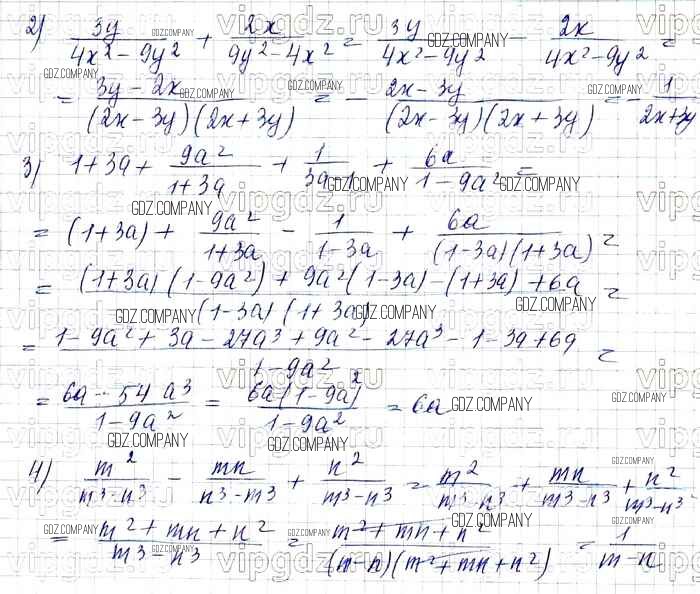 2) 3y/(4x²-9y²) + 2x/(9y²-4x²) = 3y/(4x²-9y²) - 2x/(4x²-9y²) =
= (3y-2x)/((2x-3y)(2x+3y)) = - (2x-3y)/((2x-3y)(2x+3y)) = - 1/(2x+3y)
3) 1+3a+ 9a²/(1+3a) + 1/(3a-1) + 6a/(1-9a²) =
= (1+3a) + 9a²/(1+3a) - 1/(1-3a) + 6a/((1-3a)(1+3a)) =
= ((1+3a)(1-9a²) + 9a²(1-3a) - (1+3a) + 6a)/((1-3a)(1+3a)) =
= (1-9a²+3a-27a³+9a²-27a³-1-3a+6a)/(1-9a²) =
= (6a-54a³)/(1-9a²) = 6a(1-9a²)/(1-9a²) = 6a
4) m²/(m³-n³) - mn/(n³-m³) + n²/(m³-n³) = m²/(m³-n³) + mn/(m³-n³) + n²/(m³-n³)
= (m²+mn+n²)/(m³-n³) = (m²+mn+n²)/((m-n)(m²+mn+n²)) = 1/(m-n)
GDZ.COMPANY
vipgdz.ru